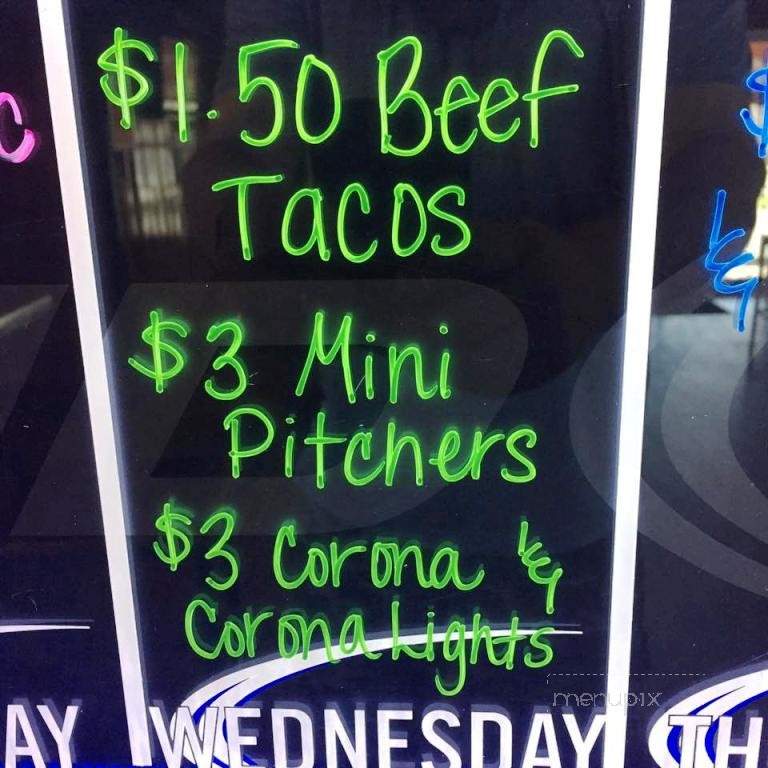 $1.50 Beef
Tacos
$3 Mini
Pitchers
$3 Corona &
Corona Lights
menupix
AY WEDNESDAY TH
C
$
&